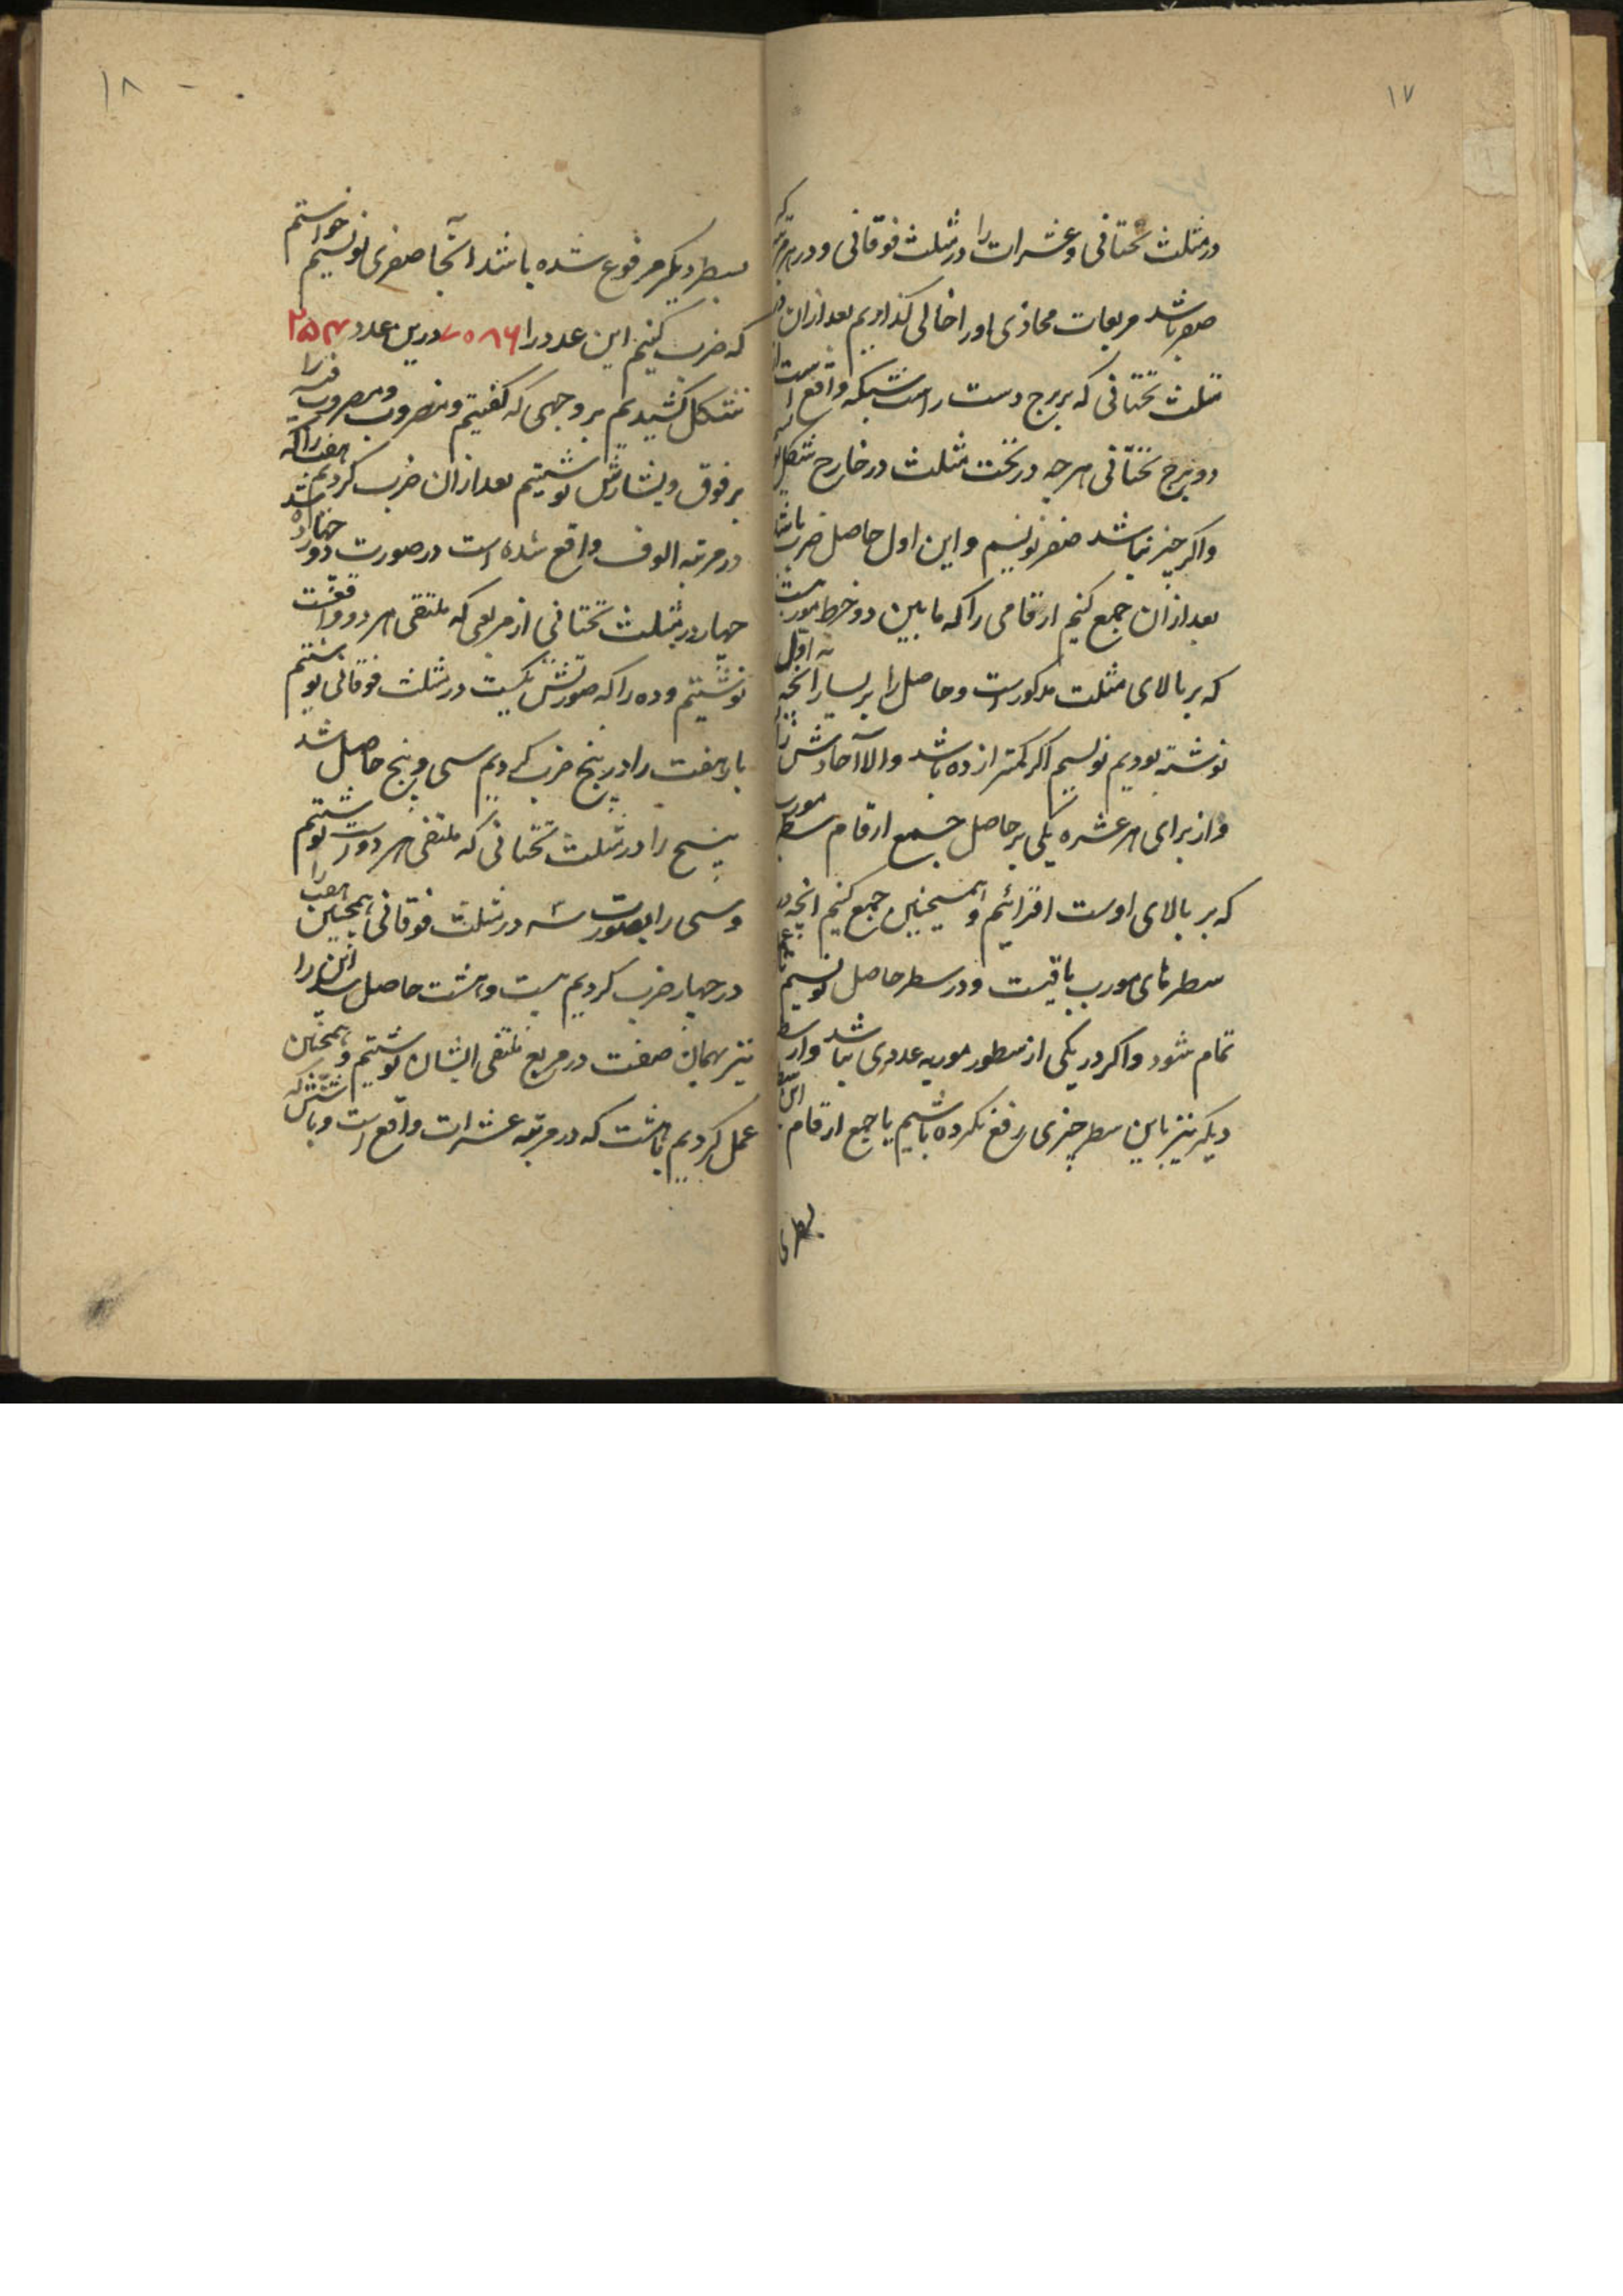 ۱۷
در مثلث تحتانی و عشرات را در مثلث فوقانی و در هر مرتبه که
صفر باشد مربعات محاذی او را خالی گذاریم بعد ازان در
مثلث تحتانی که بر برج دست راست شبکه واقع است
دو برج تحتانی هر چه در تحت مثلث در خارج شکل
و اکر چیز نباشد صفر نویسم و این اول حاصل ضرب باشد
بعد ازان جمع کنیم ارقامی را که ما بین دو خط مورب است
که بر بالای مثلث مذکور است و حاصل را بر یسار انچه اول
نوشته بودیم نویسیم اکر کمتر از ده باشد والا آحادش را
و از برای هر عشره یکی بر حاصل جمع ارقام سطر مورب
که بر بالای اوست افزائیم و همیچنین جمع کنیم انچه در
سطرهای مورب باقیست و در سطر حاصل نویسیم
تمام شود و اکر در یکی از سطور موربه عددی نباشد و از سطر
دیکر نیز باین سطر چیزی رفع نکرده باشیم یا جمع ارقام این
۱۸
بسطر دیکر مرفوع شده باشد آنجا صفری نویسیم خواستم
که ضرب کنیم این عدد را ۷۰۸۶ درین عدد ۲۵۴
شکل کشیدیم بر وجهی که کفتیم و مضروب و مضروب فیه را
بر فوق و یسارش نوشتیم بعد ازان ضرب کردیم هفت را که
در مرتبه الوف واقع شده است در صورت دو چهارده شد
چهار در مثلث تحتانی از مربعی که ملتقی هر دو واقعست
نوشتیم و ده را که صورتش یکیست در مثلث فوقانی نوشتیم
باز هفت را در پنج ضرب کردیم سی و پنج حاصل شد
پنج را در مثلث تحتانی که ملتقی هر دو است نوشتیم
و سی را بصورت سه در مثلث فوقانی همچنین هفت را
در چهار ضرب کردیم بیست و هشت حاصل شد این را
نیز بهمان صفت در مربع ملتقی ایشان نوشتیم و همچنین
عمل کردیم با هشت که در مرتبه عشرات واقع است و با شش که